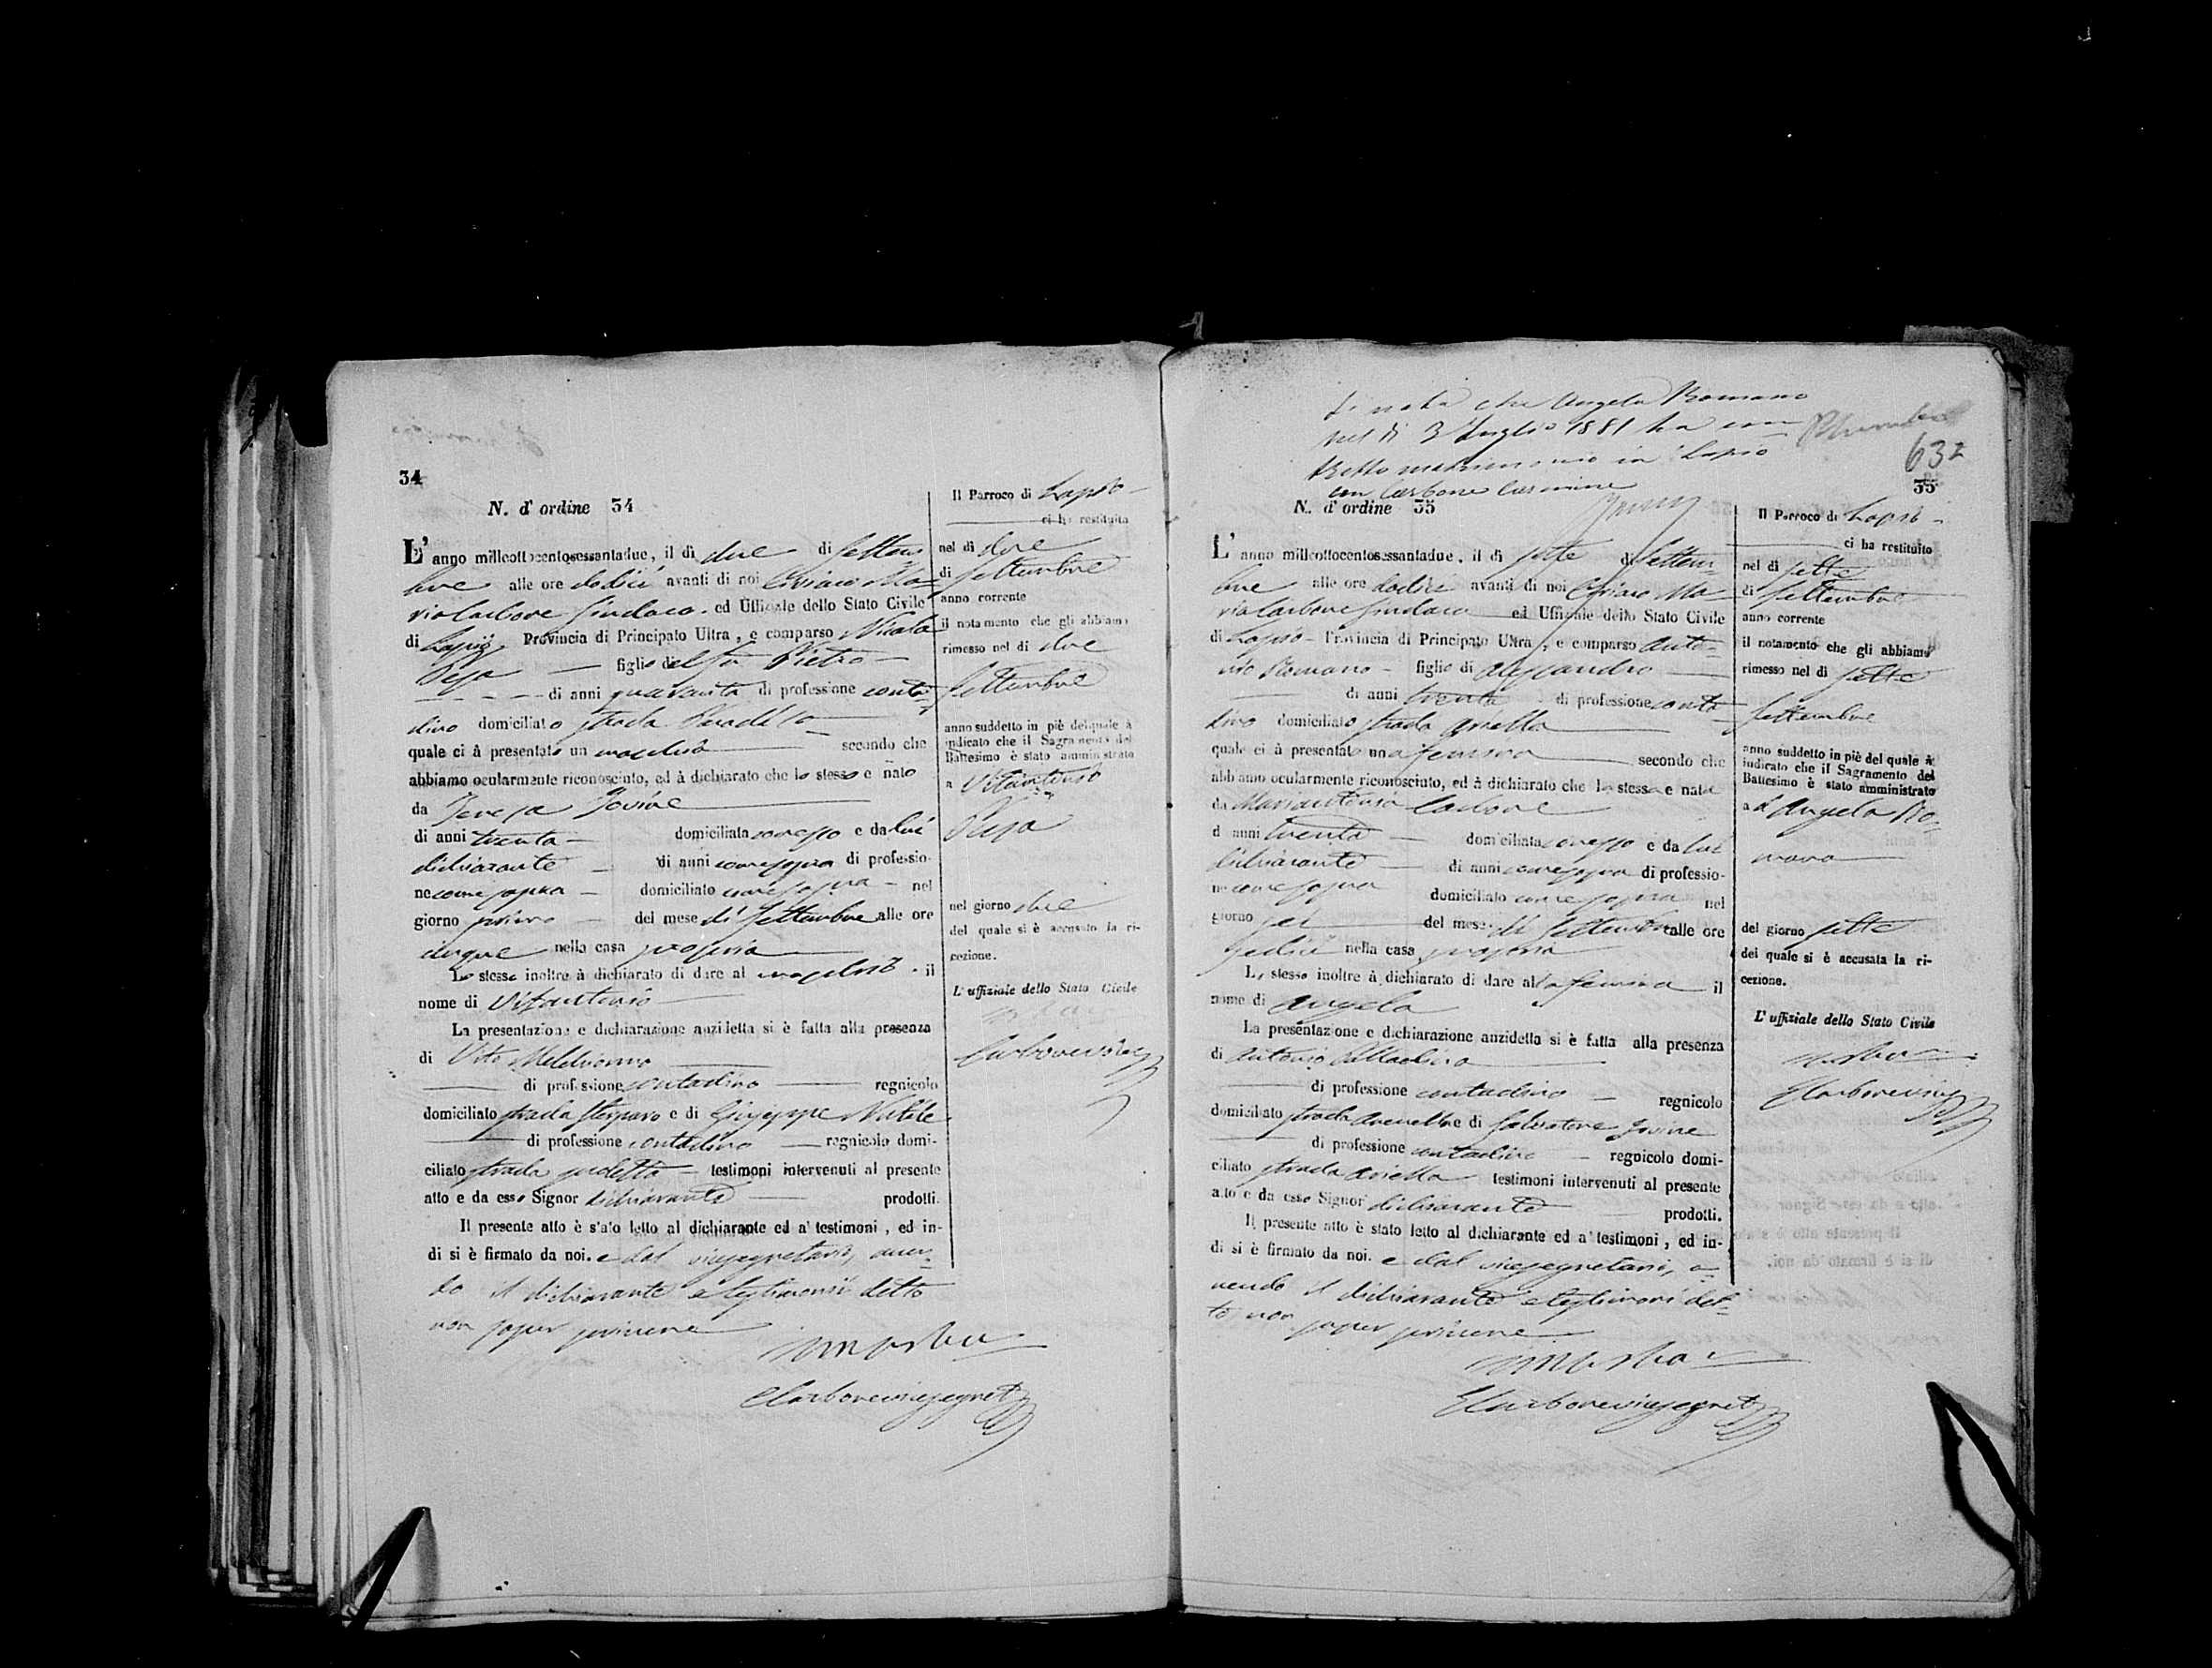 34
N. d'ordine 34
L'anno milleottocentosessantadue, il di due di Settem
bre alle ore dodici avanti di noi Ciriaco Ma
ria Carbone Sindaco ed Uffiziale dello Stato Civile
di Lapio Provincia di Principato Ultra, e comparso Nicola
figlio del fu Pietro
di anni quaranta di professione conta
dino domiciliato strada
quale ci à presentato un maschio secondo che
abbiamo ocularmente riconosciuto, ed à dichiarato che lo stesso e nato
da Teresa Iovine
di anni trenta domiciliata con esso e da lui
dichiarante di anni come sopra di professio-
ne come sopra domiciliato come sopra nel
giorno primo del mese di Settembre alle ore
cinque nella casa propria
Lo stesso inoltre à dichiarato di dare al maschio il
nome di Vitantonio
La presentazione e dichiarazione anzidetta si è fatta alla presenza
di Vito
di professione contadino regnicolo
domiciliato strada e di Giuseppe
di professione contadino regnicolo domi-
ciliato strada sudetta testimoni intervenuti al presente
atto e da esso Signor dichiarante prodotti.
Il presente atto è stato letto al dichiarante ed a' testimoni, ed in-
di si è firmato da noi. e dal vicesegretario, aven-
do il dichiarante e testimoni detto
non saper scrivere
Carbone vicesegret
Il Parroco di Lapio
ci ha restituita
nel di due
di Settembre
anno corrente
il notamento che gli abbiamo
rimesso nel di due
Settembre
anno suddetto in piè del quale à
indicato che il Sagramento del
Battesimo è stato amministrato
a Vitantonio
nel giorno due
del quale si è accusato la ri-
cezione.
L'uffiziale dello Stato Civile
Carbone vices
Si nota che Angela Romano
nel di 3 Luglio 1881 ha con
tratto matrimonio in Lapio
con Carbone Carmine
632
35
N. d'ordine 35
L'anno millcottocentosessantadue, il di sette di Settem-
bre alle ore dodici avanti di noi Ciriaco Ma
ria Carbone Sindaco ed Uffiziale dello Stato Civile
di Lapio Provincia di Principato Ultra, e comparso Anto-
nio Romano figlio di Alessandro
di anni trenta di professione conta
dino domiciliato strada Ariella
quale ci à presentato una femina secondo che
abbiamo ocularmente riconosciuto, ed à dichiarato che la stessa e nata
da Mariantonia Carbone
di anni trenta domiciliata con esso e da lui
dichiarante di anni come sopra di professio-
ne come sopra domiciliato come sopra nel
giorno sei del mese di Settembre alle ore
sedici nella casa propria
Lo stesso inoltre à dichiarato di dare alla femina il
nome di Angela
La presentazione e dichiarazione anzidetta si è fatta alla presenza
di Antonio
di professione contadino regnicolo
domiciliato strada e di Salvatore Iovine
di professione contadino regnicolo domi-
ciliato strada Ariella testimoni intervenuti al presente
atto e da esso Signor dichiarante prodotti.
Il presente atto è stato letto al dichiarante ed a' testimoni, ed in-
di si è firmato da noi. e dal vicesegretario, a-
vendo il dichiarante e testimoni det-
to non saper scrivere
Carbone vicesegret
Il Parroco di Lapio
ci ha restituito
nel di sette
di Settembre
anno corrente
il notamento che gli abbiamo
rimesso nel di sette
Settembre
anno suddetto in piè del quale à
indicato che il Sagramento del
Battesimo è stato amministrato
a d Angela Ro-
mano
del giorno sette
del quale si è accusata la ri-
cezione.
L'uffiziale dello Stato Civile
Carbone vices